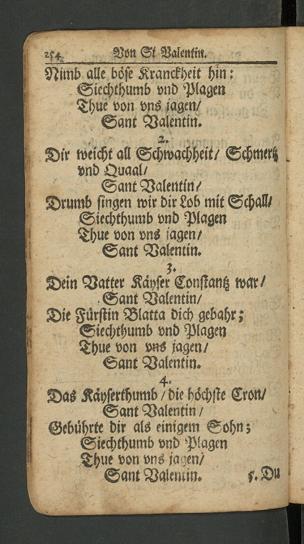 254. Von St Valentin.
Nimb alle böse Kranckheit hin:
Siechthumb vnd Plagen
Thue von vns jagen/
Sant Valentin.
2.
Dir weicht all Schwachheit/ Schmertz
vnd Quaal/
Sant Valentin/
Drumb singen wir dir Lob mit Schall/
Siechthumb vnd Plagen
Thue von vns jagen/
Sant Valentin.
3.
Dein Vatter Käyser Constantz war/
Sant Valentin/
Die Fürstin Blatta dich gebahr;
Siechthumb vnd Plagen
Thue von vns jagen/
Sant Valentin.
4.
Das Käyserthumb/ die höchste Cron/
Sant Valentin/
Gebührte dir als einigem Sohn;
Siechthumb vnd Plagen
Thue von vns jagen/
Sant Valentin. 5. Du